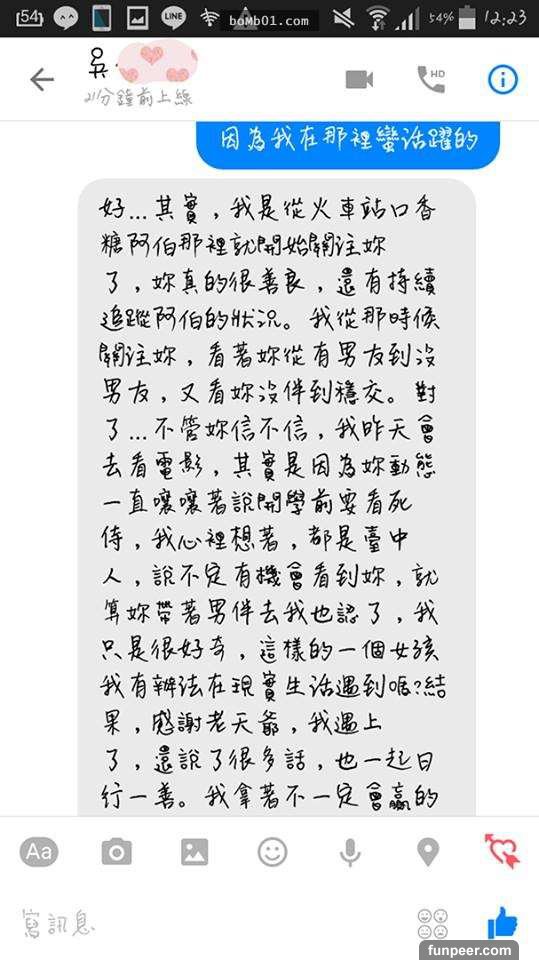 54
LINE
boMb01.com
54%
12:23
吳
21分鐘前上線
HD
因為我在那裡蠻活躍的
好...其實，我是從火車站口香
糖阿伯那裡就開始關注妳
了，妳真的很善良，還有持續
追蹤阿伯的狀況。我從那時候
關注妳，看著妳從有男友到沒
男友，又看妳沒伴到穩交。對
了...不管妳信不信，我昨天會
去看電影，其實是因為妳動態
一直嚷嚷著說開學前要看死
侍，我心裡想著，都是臺中
人，說不定有機會看到妳，就
算妳帶著男伴去我也認了，我
只是很好奇，這樣的一個女孩
我有辦法在現實生活遇到嗎?結
果，感謝老天爺，我遇上
了，還說了很多話，也一起日
行一善。我拿著不一定會贏的
Aa
寫訊息
funpeer.com